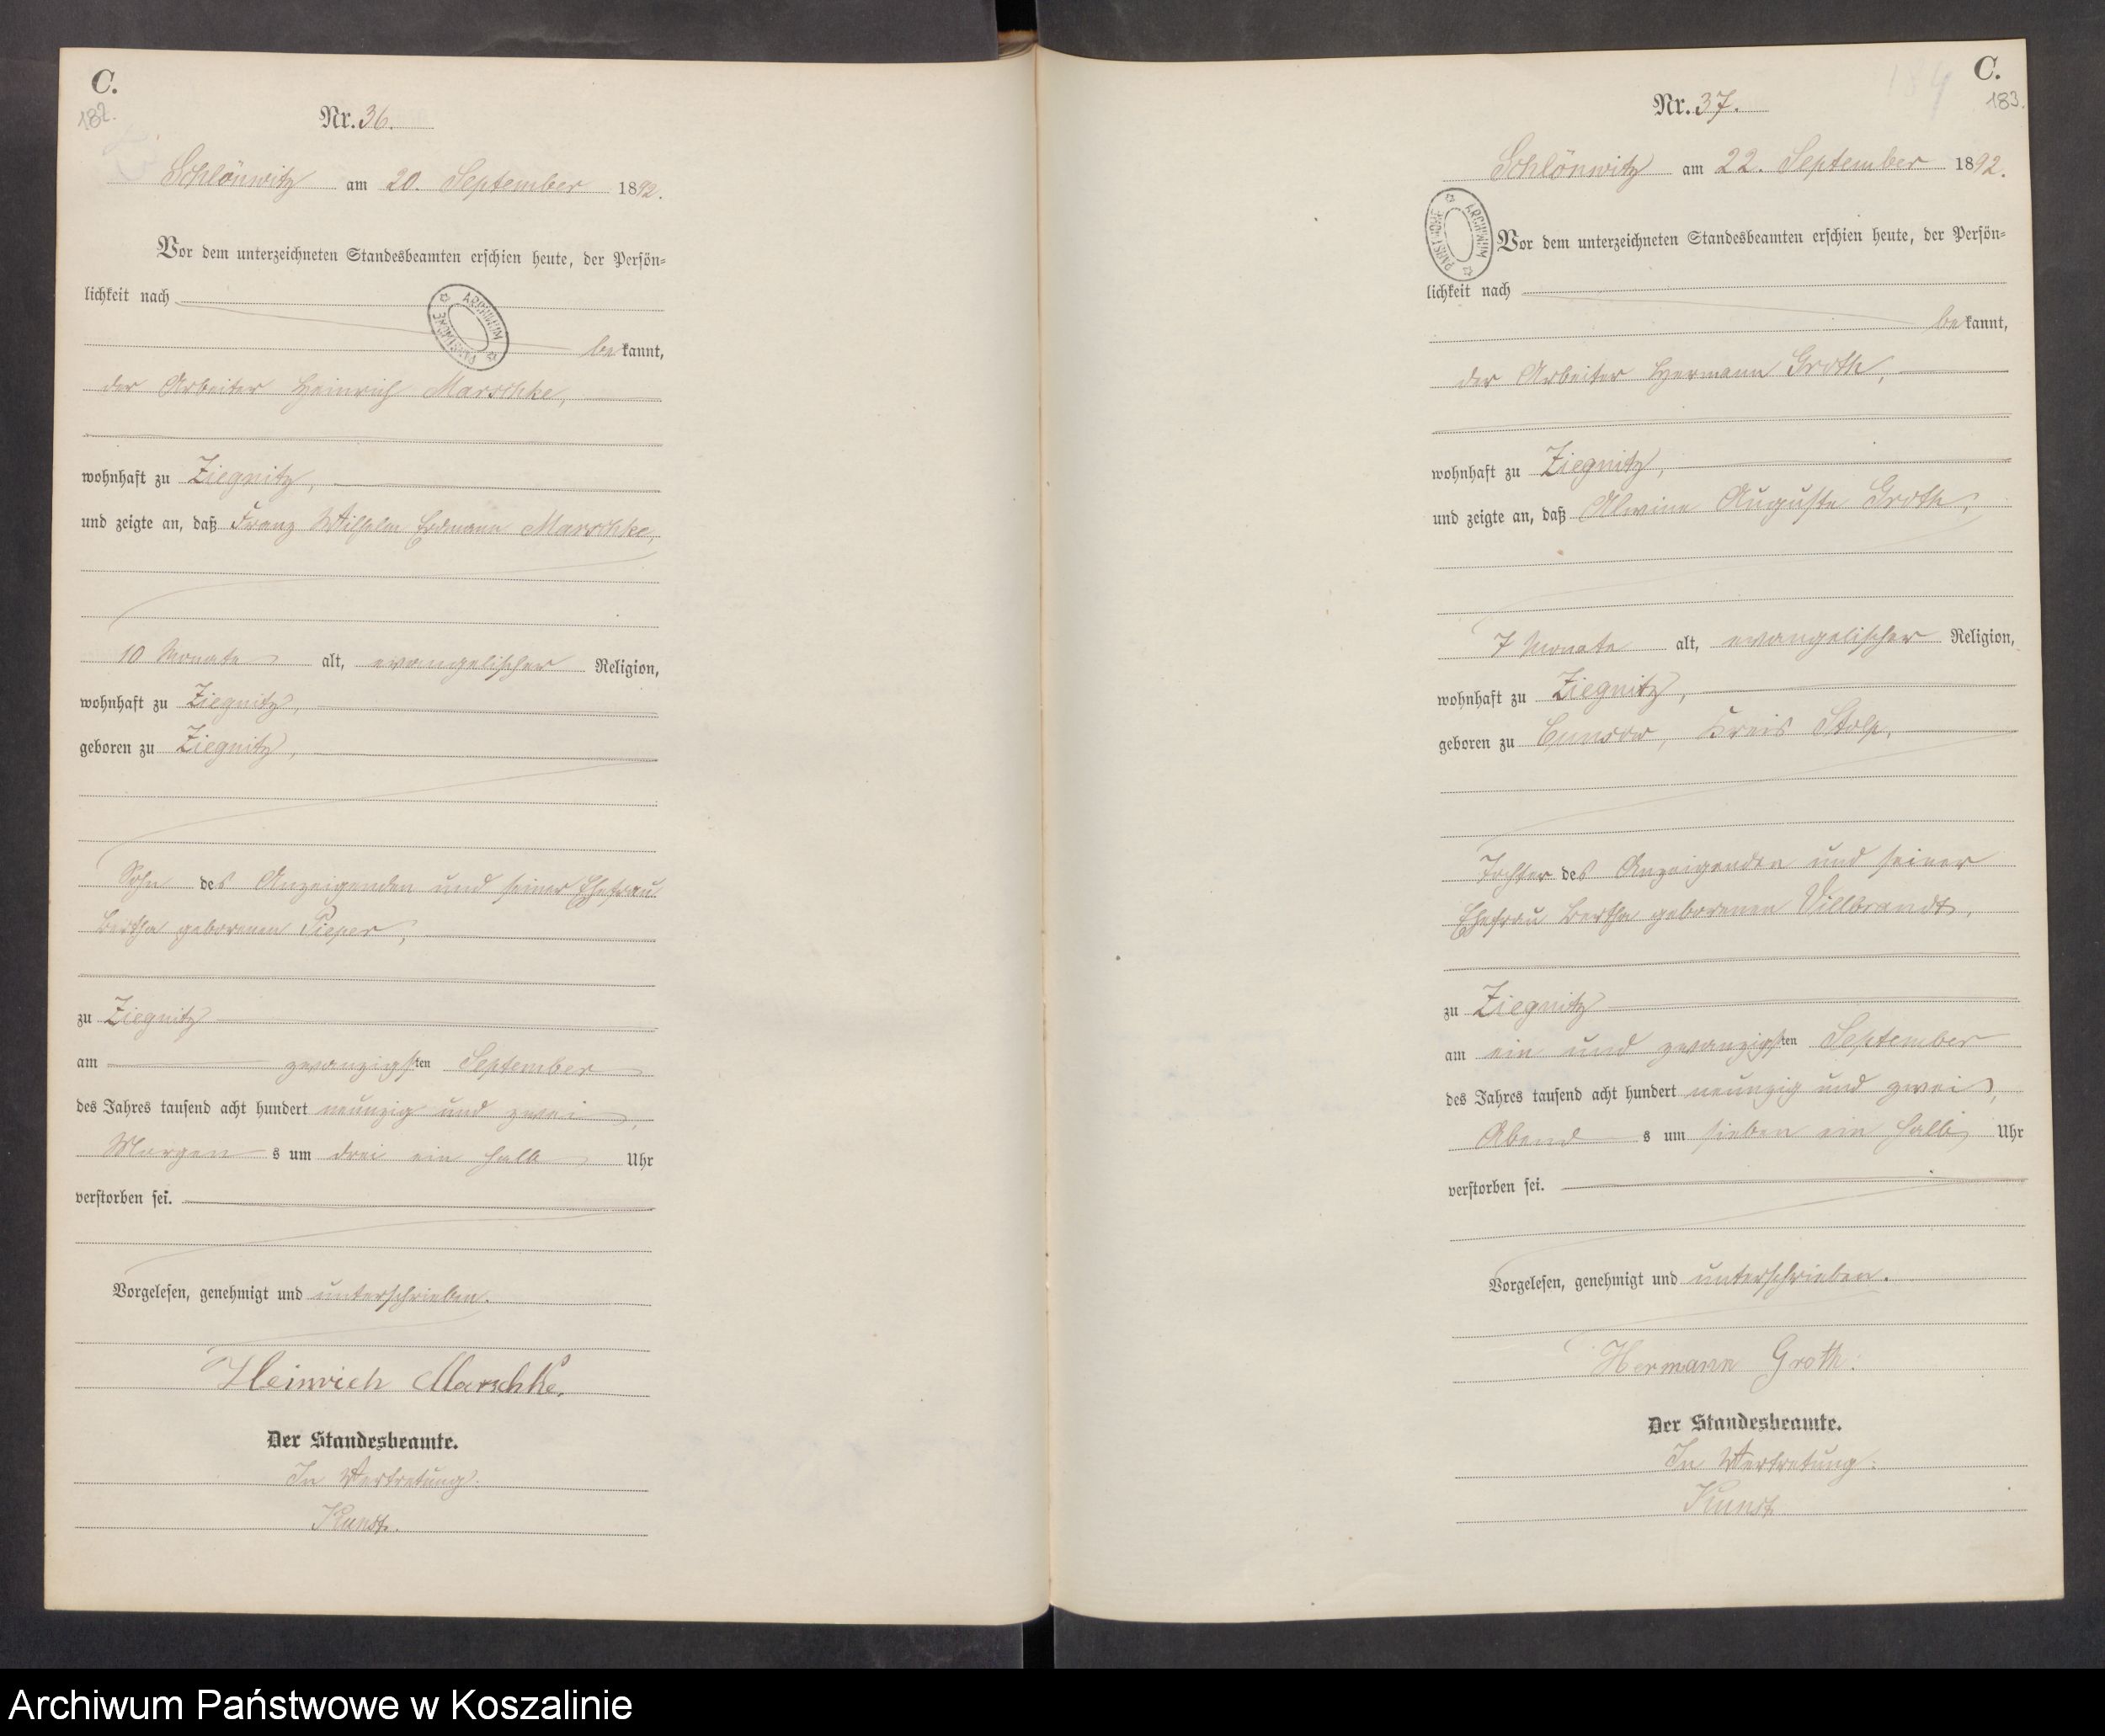 C.
182.
Nr. 36.
Schlönwitz am 20. September 1892.
Vor dem unterzeichneten Standesbeamten erschien heute, der Persön=
lichkeit nach
bekannt,
der Arbeiter Heinrich Marschke,
wohnhaft zu Ziegnitz,
und zeigte an, daß Franz Wilhelm Erdmann Marschke,
10 Monate alt, evangelischer Religion,
wohnhaft zu Ziegnitz,
geboren zu Ziegnitz,
Sohn des Anzeigenden und seiner Ehefrau
Bertha geborenen Pieper,
zu Ziegnitz
am zwanzigsten September
des Jahres tausend acht hundert neunzig und zwei,
Morgens um drei ein halb Uhr
verstorben sei.
Vorgelesen, genehmigt und unterschrieben.
Heinrich Marschke.
Der Standesbeamte.
In Vertretung:
Kunst.
ARCHIWUM PAŃSTWOWE
C.
183.
Nr. 37.
Schlönwitz am 22. September 1892.
Vor dem unterzeichneten Standesbeamten erschien heute, der Persön=
lichkeit nach
bekannt,
der Arbeiter Hermann Groth,
wohnhaft zu Ziegnitz,
und zeigte an, daß Alwine Auguste Groth,
7 Monate alt, evangelischer Religion,
wohnhaft zu Ziegnitz,
geboren zu Cunsow, Kreis Stolp,
Tochter des Anzeigenden und seiner
Ehefrau Bertha geborenen Villbrandt,
zu Ziegnitz
am ein und zwanzigsten September
des Jahres tausend acht hundert neunzig und zwei,
Abends um sieben ein halb Uhr
verstorben sei.
Vorgelesen, genehmigt und unterschrieben.
Hermann Groth.
Der Standesbeamte.
In Vertretung:
Kunst.
ARCHIWUM PAŃSTWOWE
Archiwum Państwowe w Koszalinie